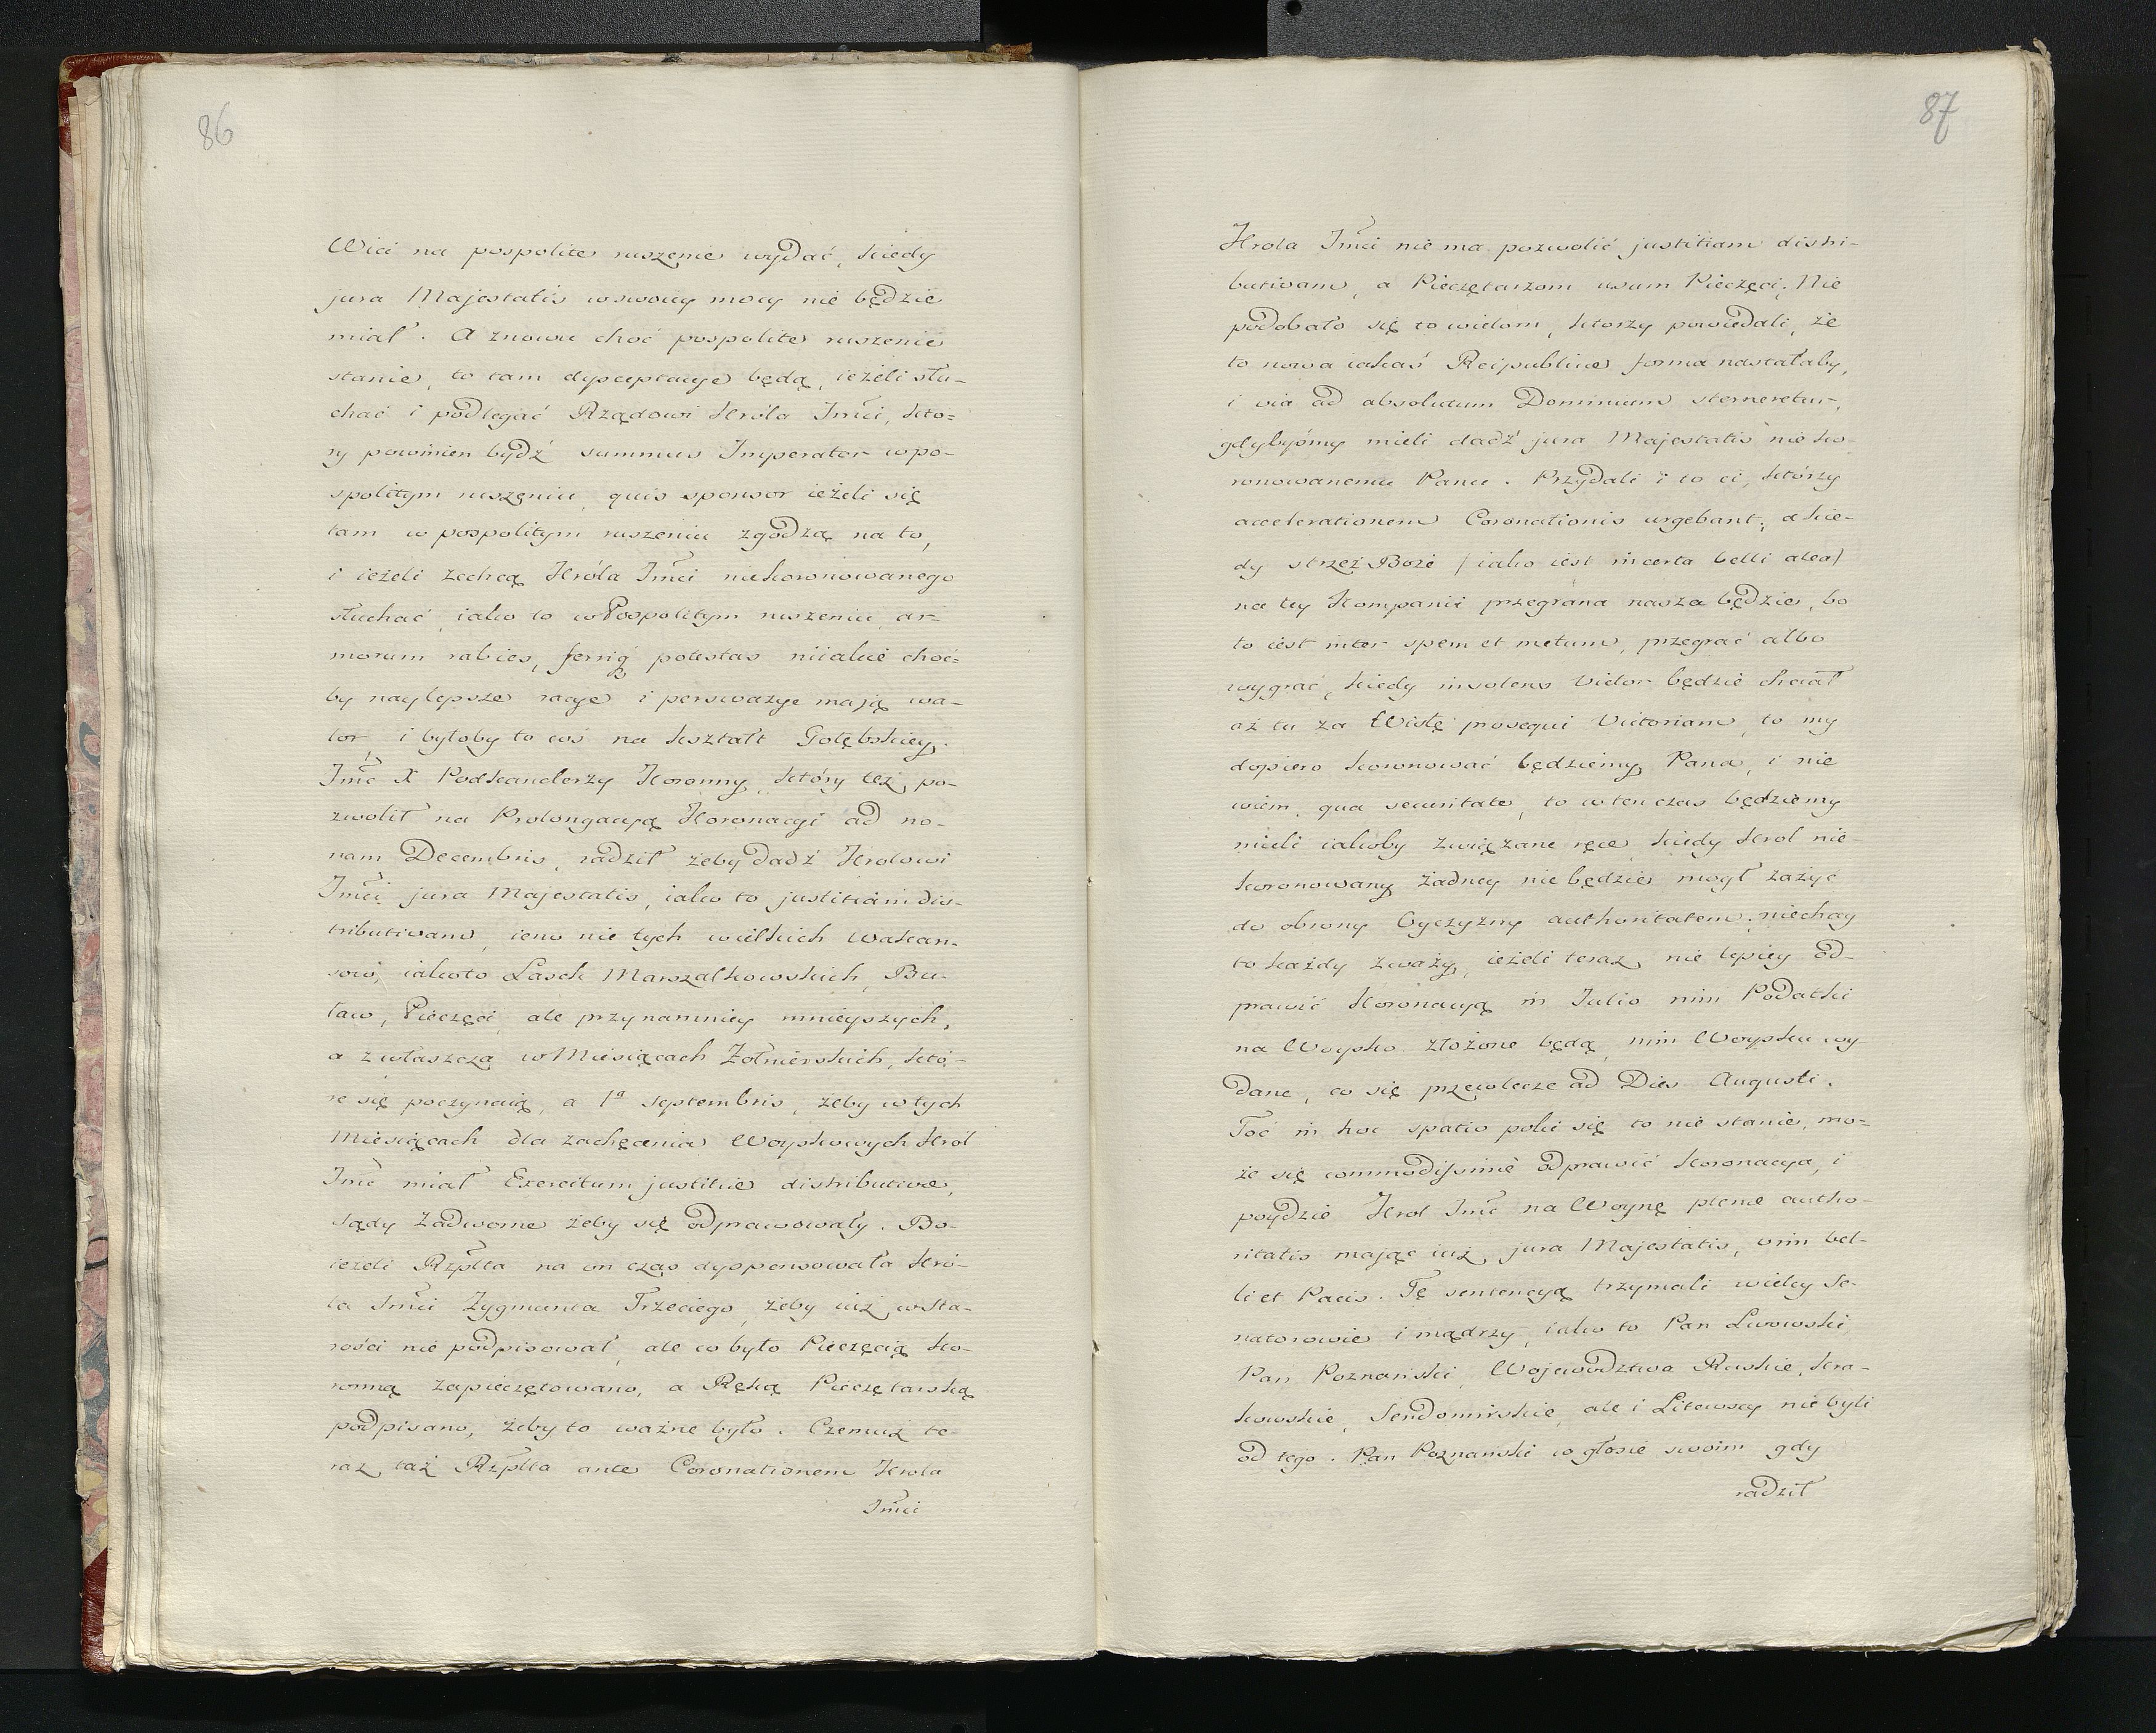 86
Wici na pospolite ruszenie wydać, kiedy
jura Majestatis w swoiey mocy nie będzie
miał. A znowu choć pospolite ruszenie
stanie, to tam dysceptacye będą, ieżeli słu-
chać i podlegać Rządowi Króla Jmći, kto-
ry powinien bydź summus Imperator w po-
spolitym ruszeniu, quis sponsor ieżeli się
tam w pospolitym ruszeniu zgodzą na to,
i ieżeli zechcą Króla Jmći niekoronowanego
słuchać, iako to w Pospolitym ruszeniu, ar-
morum rabies, ferriq potestas niiakie choć-
by naylepsze racye i perswazye mają wa-
lor, i byłoby to coś na kształt Gołębskiey.
Jmć X Podkanclerzy Koronny, który też po-
zwolił na Prolongacyą Koronacyi ad no-
nam Decembris, radził żeby dadź Krolowi
Jmći jura Majestatis, iako to justitiam dis-
tributivam, ieno nie tych wielkich Wakan-
sow, iakoto Lask Marszalkowskich, Bu-
ław, Pieczęci, ale przynamniey mnieyszych,
a zwłaszcza w Miesiącach Żołnierskich, któ-
re się poczynaią, a 1ª septembris, żeby w tych
Miesiącach dla zachęcenia Woyskowych Król
Jmć miał Exercitum justitiæ distributivæ,
sądy Zadworne żeby się odprawowały. Bo-
ieżeli Rzplta na on czas dyspensowała Kró-
la Jmći Zygmunta Trzeciego, żeby iuż w Sta-
rości nie podpisował, ale co było Pieczęcią Ko-
ronną zapieczętowano, a Ręką Pieczętarską
podpisano, żeby to ważne było. Czemuż te-
raz taż Rzplta ante Coronationem Krola
Jmći
87
Krola Jmći nie ma pozwolić justitiam distri-
butivam, a Pieczętarzom usum Pieczęci. Nie
podobało się to wielom, ktorzy powiedali, że
to nowa iakaś Reipublicæ forma nastałaby,
i via ad absolutum Dominium sterneretur,
gdybyśmy mieli dadź jura Majestatis nie ko-
ronowanemu Panu. Przydali i to ci, którzy
accelerationem Coronationis urgebant; a kie-
dy strzeż Boże / iako iest incerta belli alea /
na tey Kompanii przegrana nasza będzie, bo
to iest inter spem et metum, przegrać albo
wygrać, kiedy insolens Victor będzie chciał
aż tu za Wisłę prosequi Victoriam, to my
dopiero koronować będziemy Pana, i nie
wiem, qua securitate, to wten czas będziemy
mieli iakoby związane ręce, kiedy Krol nie-
koronowany żadney nie będzie mogł zażyć
do obrony Oyczyzny authoritatem; niechay
to każdy zważy, ieżeli teraz nie lepiey od-
prawić Koronacyą in Julio nim Podatki
na Woysko złożone będą, nim Woysku wy-
dane, co się przewlecze ad Dies Augusti.
Toć in hoc spatio poki się to nie stanie, mo-
że się commodissimè odprawić Koronacya, i
poydzie Krol Jmć na Woynę plenæ autho-
ritatis mając iuż jura Majestatis, vim bel-
li et Pacis. Tę sentencyą trzymali wielcy Se-
natorowie i mądrzy, iako to Pan Lwowski,
Pan Poznański, Wojewodztwa Ruskie, Kra-
kowskie, Sendomirskie, ale i Litewscy nie byli
od tego. Pan Poznanski w głosie swoim gdy
radził